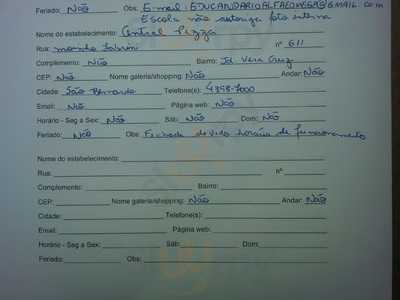 Feriado: Não Obs: E-mail: EDUCANDARIOALFAEOMEGA@GMAIL.COM
Escola não autoriza foto interna
Nome do estabelecimento: Central Pizza
Rua: nº 611
Complemento: Não Bairro: Jd Vera Cruz
CEP: Não Nome galeria/shopping: Não Andar: Não
Cidade: São Bernardo Telefone(s): 4358-7000
Email: Não Página web: Não
Horário - Seg a Sex: Não Sáb: Não Dom: Não
Feriado: Não Obs: Fechada devido horário de funcionamento
Nome do estabelecimento:
Rua: nº
Complemento: Bairro:
CEP: Nome galeria/shopping: Não Andar: Não
Cidade: Telefone(s):
Email: Página web:
Horário - Seg a Sex: Sáb: Dom:
Feriado: Obs: